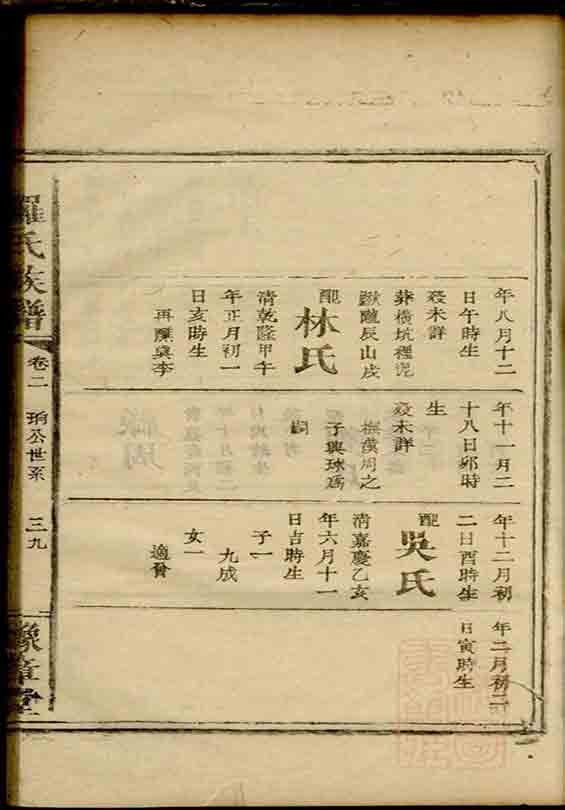 年八月十二
日午時生
歿未詳
葬橫坑裡泥
獸隴辰山戌
配
林氏
清乾隆甲午
年正月初一
日亥時生
再醮與李
年十一月二
十八日卯時
生
歿未詳
撫漢周之
子興球爲
嗣
年十二月初
二日酉時生
配
吳氏
清嘉慶乙亥
年六月十一
日吉時生
子一
九成
女一
適曾
年二月初二
日寅時生
羅氏族譜
卷二
珦公世系
三九
豫章堂